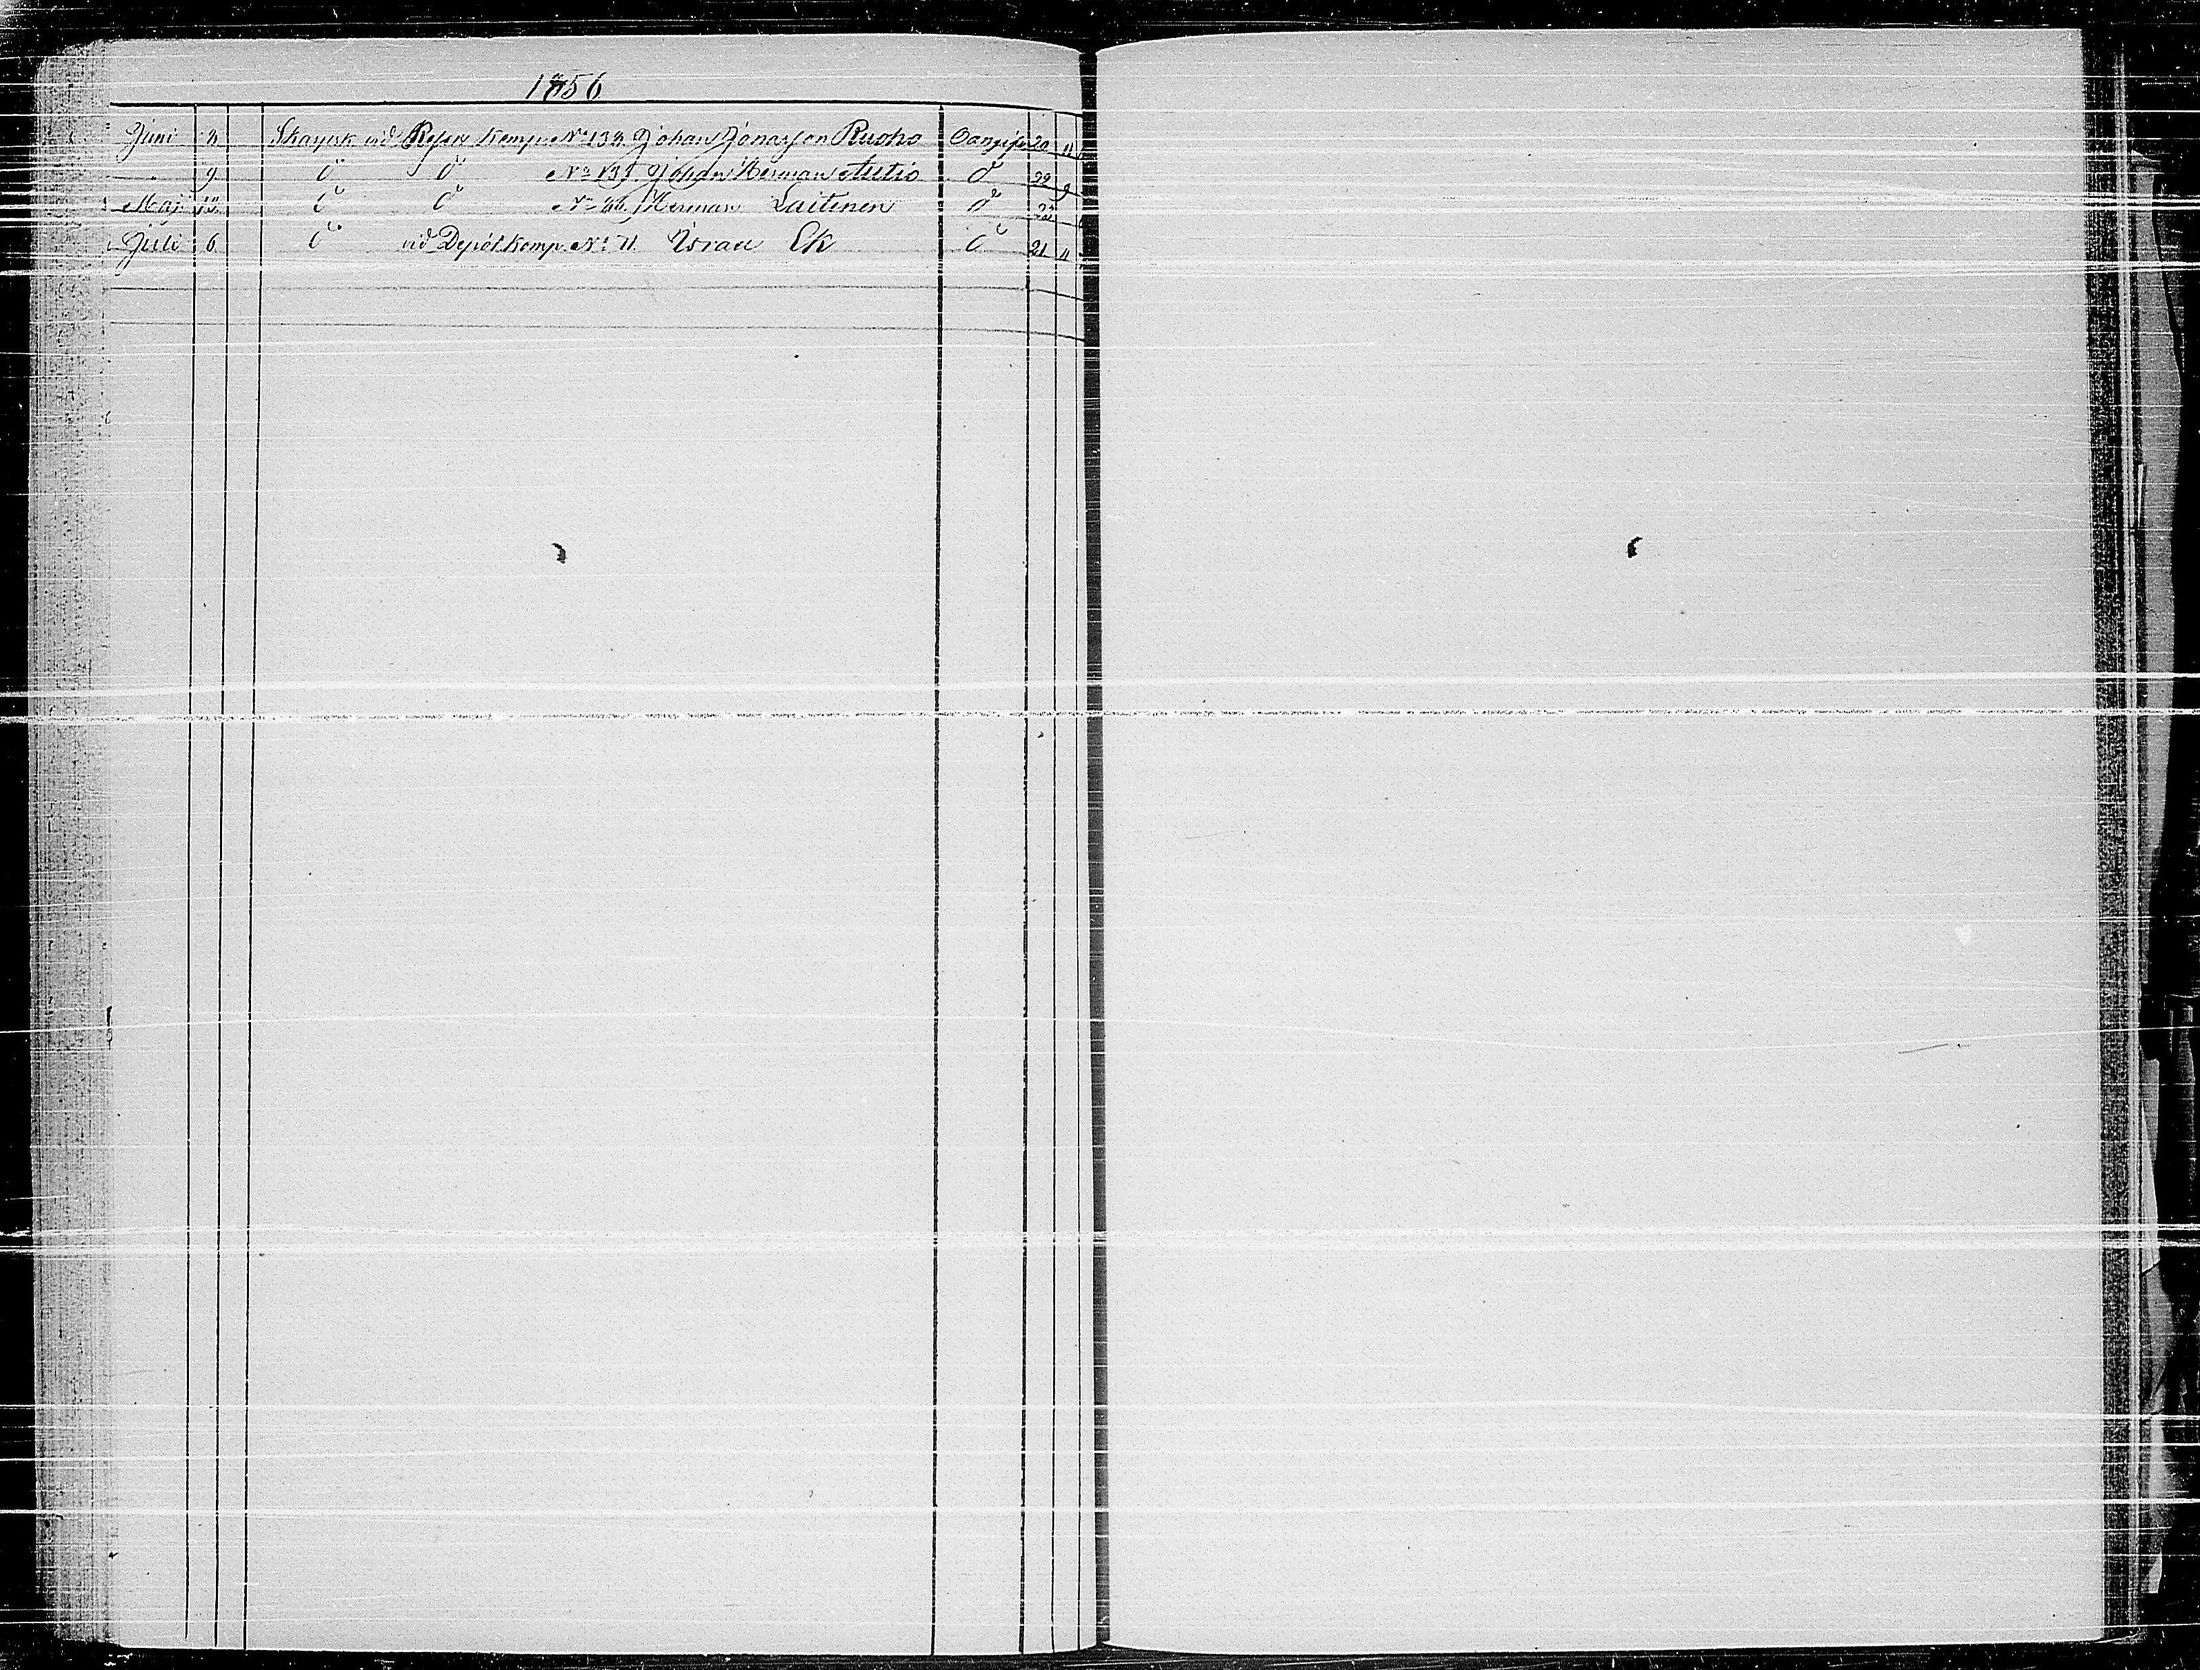 1856
Juni 8. Skarpsk. vid Reserv Komp. No 138. Johan Jonasson Ruoho Oangifv. 20 11
" 9. do do No 131. Johan Herman Autio do 22 9
Maj 13. do do No 86. Herman Laitinen do 23
Juli 6. do vid Depôt Komp. No 71. Israel Ek do 21 4